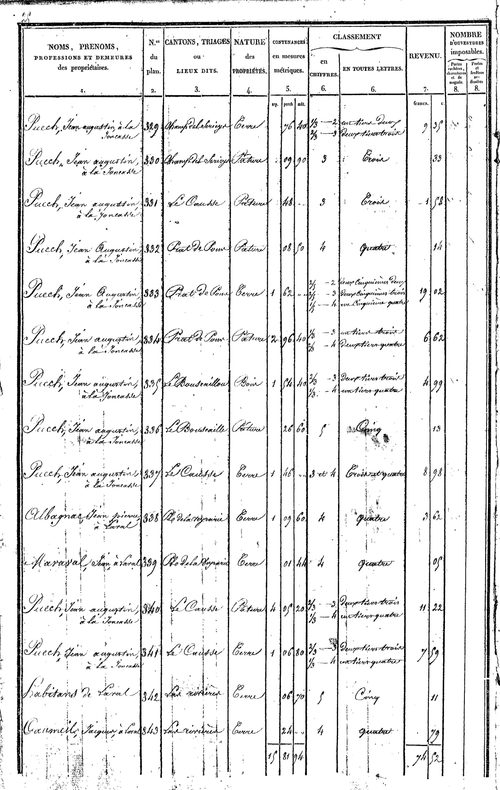 NOMS, PRENOMS, PROFESSIONS ET DEMEURES des propriétaires. N.os du plan. CANTONS, TRIAGES ou LIEUX DITS. NATURE des PROPRIÉTÉS. CONTENANCES en mesures métriques. CLASSEMENT en CHIFFRES. EN TOUTES LETTRES. REVENU. NOMBRE D'OUVERTURES imposables.
1. 2. 3. 4. 5. 6. 6. 7. 8. 8.
arp. perch. mèt. francs. c.
Puech, Jean augustin, à la Joncasse 329 Terre 76 40 1/3 — 2 2/3 — 3 un tiers deux deux tiers trois 9 35
Puech, Jean augustin, à la Joncasse 330 Pature 09 90 3 Trois 33
Puech, Jean augustin, à la Joncasse 331 Le Causse Pature 48 .. 3 Trois 1 58
Puech, Jean Augustin, à la Joncasse 332 Prat de Pour Pature 08 50 4 quatre 14
Puech, Jean Augustin, à la Joncasse 333 Prat de Pour Terre 1 62 .. 2/5 — 2 2/5 — 3 1/5 — 4 deux cinquièmes deux deux cinquièmes trois un cinquième quatre 19 02
Puech, Jean augustin, à la Joncasse 334 Prat de Pour Pature 2 96 40 1/3 — 3 2/3 — 4 un tiers trois deux tiers quatre 6 62
Puech, Jean augustin, à la Joncasse 335 Bois 1 54 40 2/3 — 3 1/3 — 4 deux tiers trois un tiers quatre 4 99
Puech, Jean augustin, à la Joncasse 336 Pature 26 60 5 Cinq 13
Puech, Jean augustin, à la Joncasse 337 Le Causse Terre 1 46 .. 3 et 4 Trois et quatre 8 98
Albagnac, Jean pierre à Laval 338 Terre 1 09 60 4 quatre 3 62
Maraval, Jean, à Laval 339 Terre 01 44 4 quatre 05
Puech, Jean augustin, à la Joncasse 340 Le Causse Pature 4 05 20 2/3 — 3 1/3 — 4 Deux tiers trois un tiers quatre 11 22
Puech, Jean augustin, à la Joncasse 341 Le Causse Terre 1 06 80 2/3 — 3 1/3 — 4 deux tiers trois un tiers quatre 7 59
habitans de Laval 342 Las rivières Terre 06 70 5 Cinq 11
Caumeil, Jacques, à Laval 343 Las rivières Terre 24 .. 4 quatre 79
15 81 94 74 52